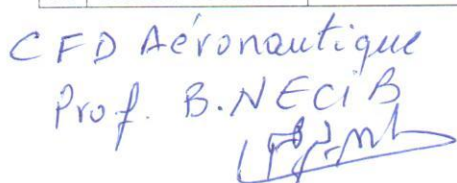 CFD Aéronautique
Prof. B. NECiB